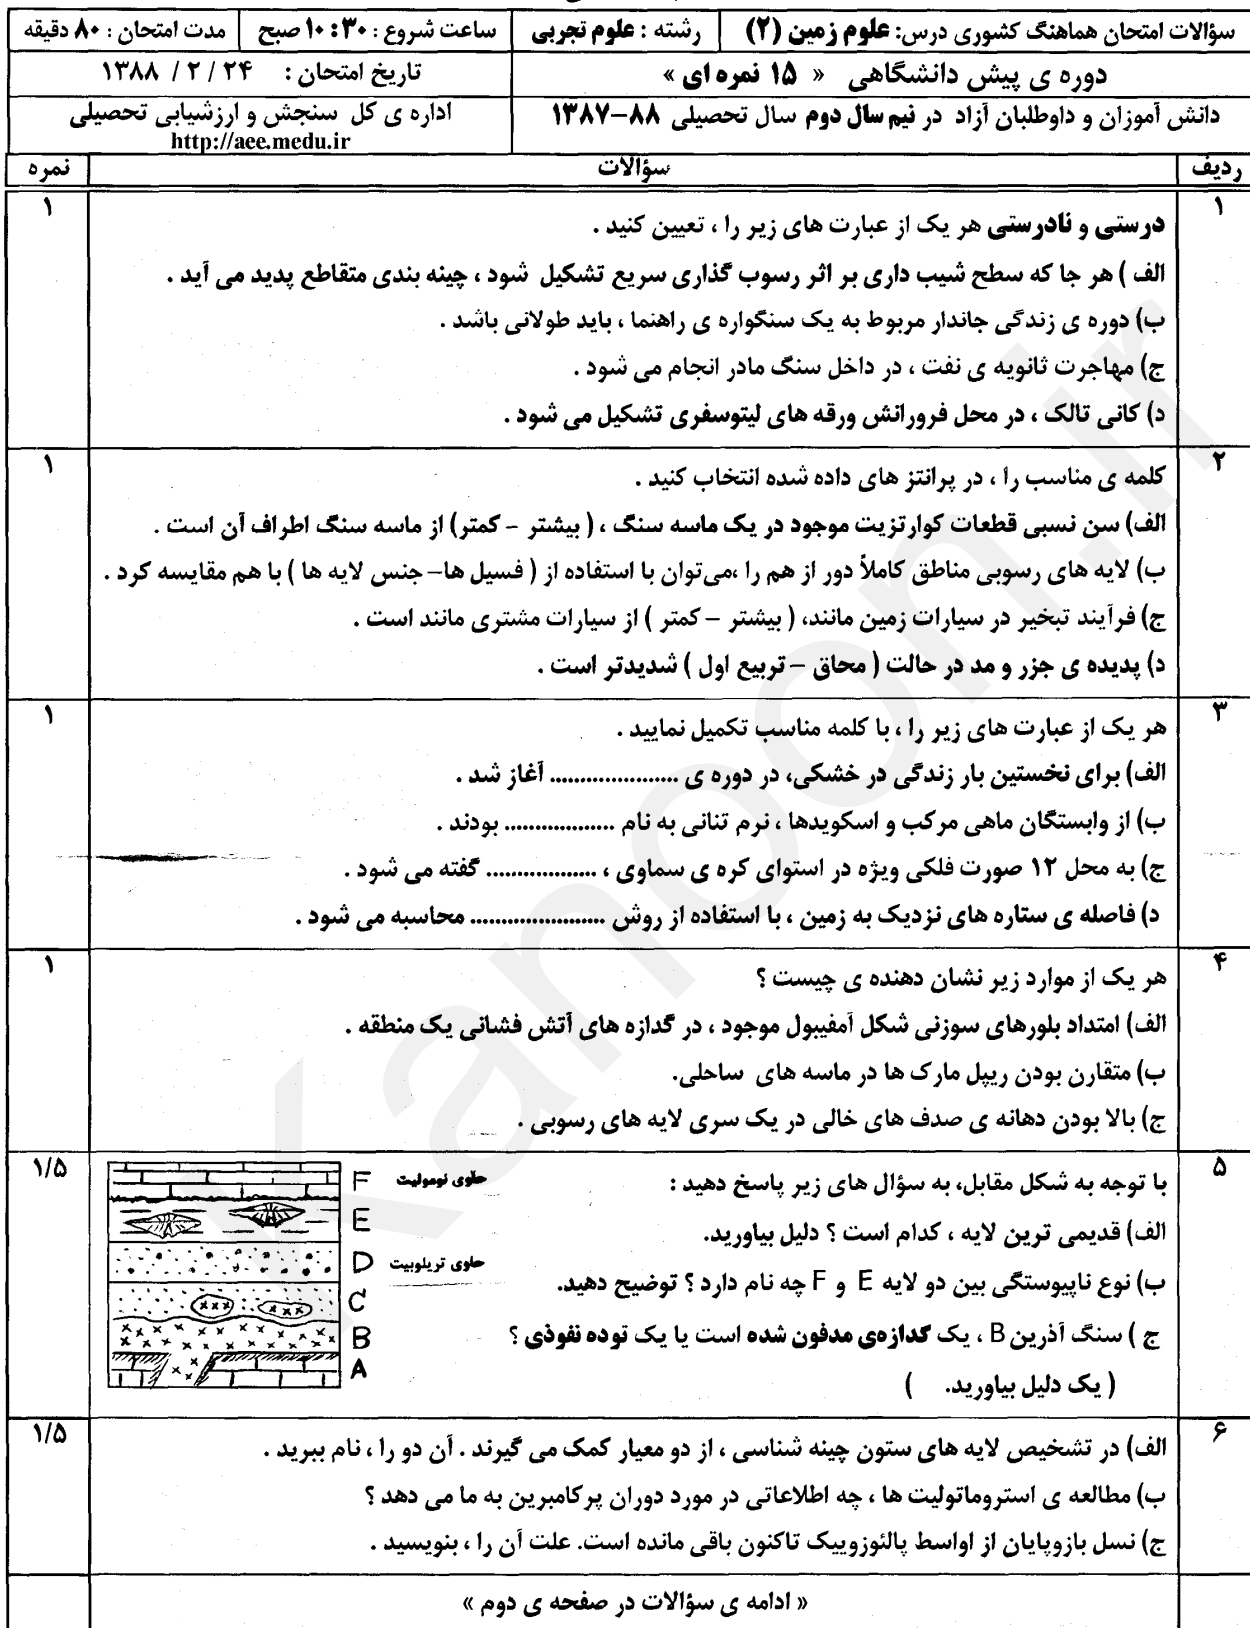 سؤالات امتحان هماهنگ کشوری درس: علوم زمین (۲) رشته : علوم تجربی ساعت شروع : ۱۰:۳۰ صبح مدت امتحان : ۸۰ دقیقه
دوره ی پیش دانشگاهی « ۱۵ نمره ای » تاریخ امتحان : ۲۴ / ۲ / ۱۳۸۸
دانش آموزان و داوطلبان آزاد در نیم سال دوم سال تحصیلی ۸۸–۱۳۸۷ اداره ی کل سنجش و ارزشیابی تحصیلی
http://aee.medu.ir
ردیف سؤالات نمره
۱ ۱
درستی و نادرستی هر یک از عبارت های زیر را ، تعیین کنید .
الف ) هر جا که سطح شیب داری بر اثر رسوب گذاری سریع تشکیل شود ، چینه بندی متقاطع پدید می آید .
ب) دوره ی زندگی جاندار مربوط به یک سنگواره ی راهنما ، باید طولانی باشد .
ج) مهاجرت ثانویه ی نفت ، در داخل سنگ مادر انجام می شود .
د) کانی تالک ، در محل فرورانش ورقه های لیتوسفری تشکیل می شود .
۲ ۱
کلمه ی مناسب را ، در پرانتز های داده شده انتخاب کنید .
الف) سن نسبی قطعات کوارتزیت موجود در یک ماسه سنگ ، ( بیشتر – کمتر) از ماسه سنگ اطراف آن است .
ب) لایه های رسوبی مناطق کاملاً دور از هم را ،می‌توان با استفاده از ( فسیل ها– جنس لایه ها ) با هم مقایسه کرد .
ج) فرآیند تبخیر در سیارات زمین مانند، ( بیشتر – کمتر ) از سیارات مشتری مانند است .
د) پدیده ی جزر و مد در حالت ( محاق – تربیع اول ) شدیدتر است .
۳ ۱
هر یک از عبارت های زیر را ، با کلمه مناسب تکمیل نمایید .
الف) برای نخستین بار زندگی در خشکی، در دوره ی ...................... آغاز شد .
ب) از وابستگان ماهی مرکب و اسکویدها ، نرم تنانی به نام ................... بودند .
ج) به محل ۱۲ صورت فلکی ویژه در استوای کره ی سماوی ، ................... گفته می شود .
د) فاصله ی ستاره های نزدیک به زمین ، با استفاده از روش ....................... محاسبه می شود .
۴ ۱
هر یک از موارد زیر نشان دهنده ی چیست ؟
الف) امتداد بلورهای سوزنی شکل آمفیبول موجود ، در گدازه های آتش فشانی یک منطقه .
ب) متقارن بودن ریپل مارک ها در ماسه های ساحلی.
ج) بالا بودن دهانه ی صدف های خالی در یک سری لایه های رسوبی .
۵ ۱/۵
با توجه به شکل مقابل، به سؤال های زیر پاسخ دهید :
الف) قدیمی ترین لایه ، کدام است ؟ دلیل بیاورید.
ب) نوع ناپیوستگی بین دو لایه E و F چه نام دارد ؟ توضیح دهید.
ج ) سنگ آذرین B ، یک گدازه‌ی مدفون شده است یا یک توده نفوذی ؟
( یک دلیل بیاورید. )
F حاوی نومولیت
E
D حاوی تریلوبیت
C
B
A
۶ ۱/۵
الف) در تشخیص لایه های ستون چینه شناسی ، از دو معیار کمک می گیرند . آن دو را ، نام ببرید .
ب) مطالعه ی استروماتولیت ها ، چه اطلاعاتی در مورد دوران پرکامبرین به ما می دهد ؟
ج) نسل بازوپایان از اواسط پالئوزوییک تاکنون باقی مانده است. علت آن را ، بنویسید .
« ادامه ی سؤالات در صفحه ی دوم »
Kanoon.ir